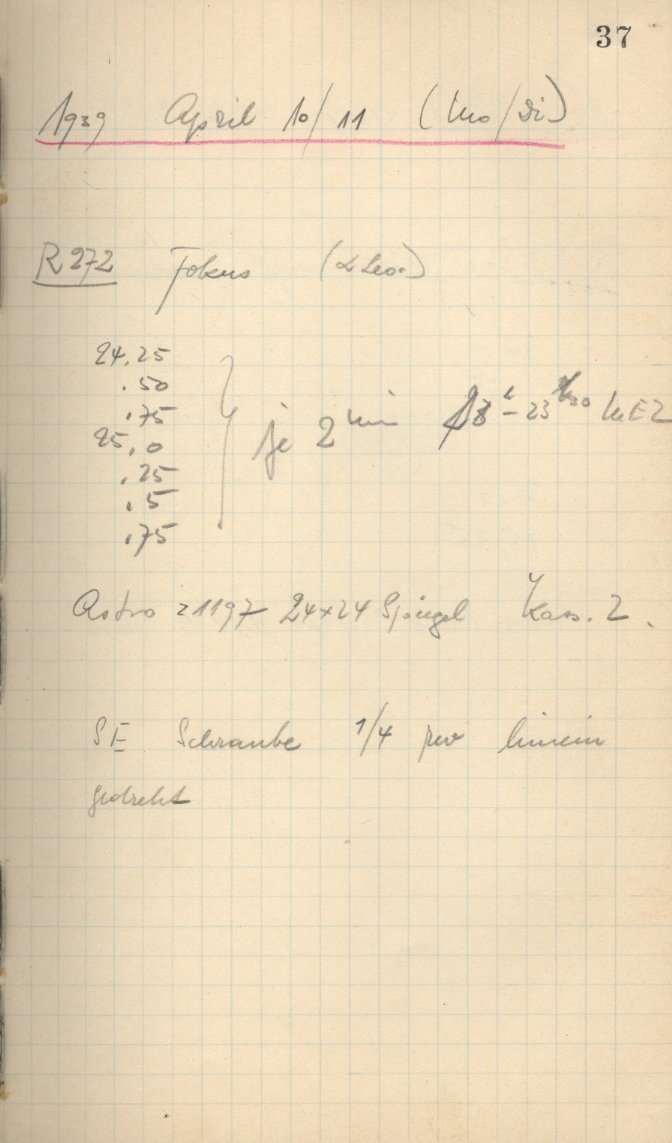 37
1939 April 10/11 (Mo/Di)
R 272 Fokus (α Leo.)
24,25
.50
,75
25,0
,25
,5
,75
je 2 min 23 h - 23 h 30 MEZ
Astro z 1197 24x24 Spiegel Kass. 2.
SE Schraube 1/4 rev hinein
gedreht